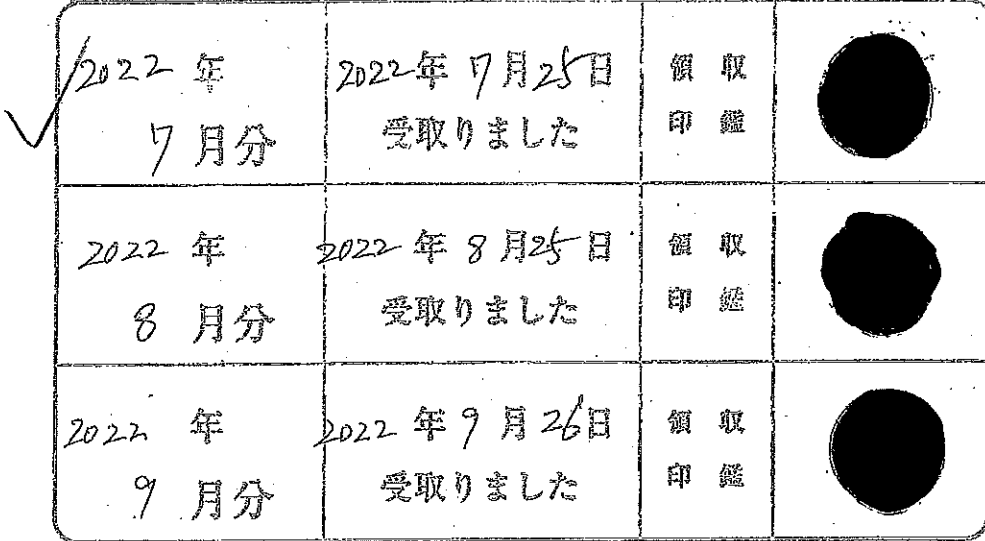 2022 年
7 月分
2022年 7月25日
受取りました
領 収
印 鑑
2022 年
8 月分
2022 年 8 月25日
受取りました
領 収
印 鑑
2022 年
9 月分
2022 年 9 月 26日
受取りました
領 収
印 鑑